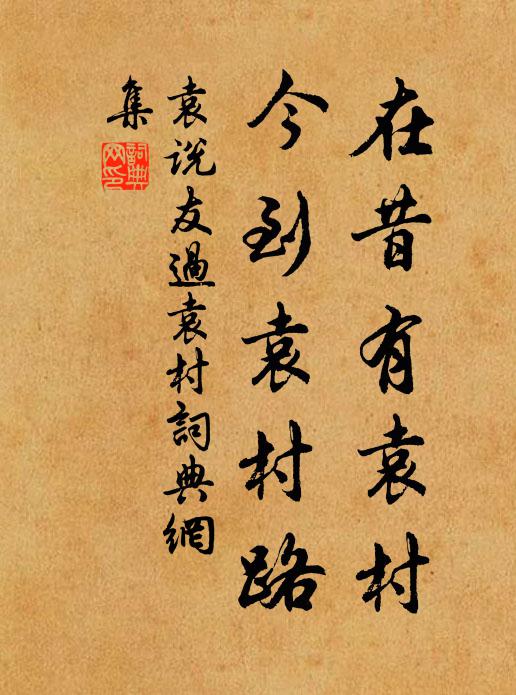 在昔有袁村
今到袁村路
袁説友過袁村詞典網
集
詞典
網印